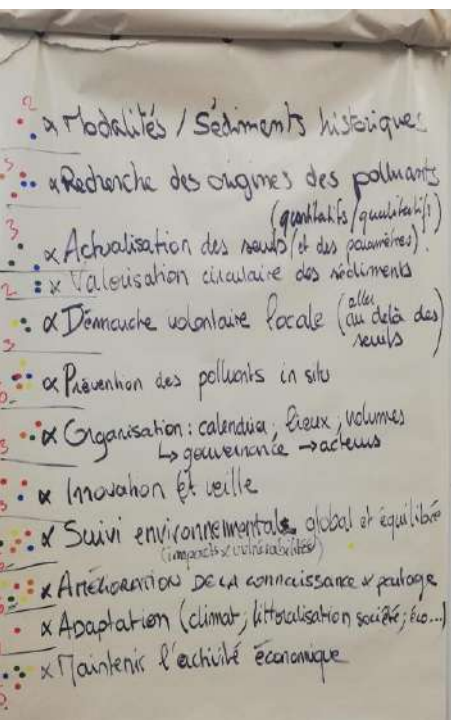 2 × Modalités / Sédiments historiques
× Recherche des origines des polluants
(quantitatifs / qualitatifs)
3 × Actualisation des seuils (et des paramètres).
2 × Valorisation circulaire des sédiments
× Démarche volontaire locale (aller au delà des seuils)
× Prévention des polluants in situ
3 × Organisation : calendrier, lieux, volumes
↳ gouvernance → acteurs
× Innovation et veille
× Suivi environnemental global et équilibré
(impacts × vulnérabilités)
× AMÉLIORATION DE LA connaissance & partage
× ADAPtation (climat ; littoralisation société ; éco...)
× Maintenir l'activité économique